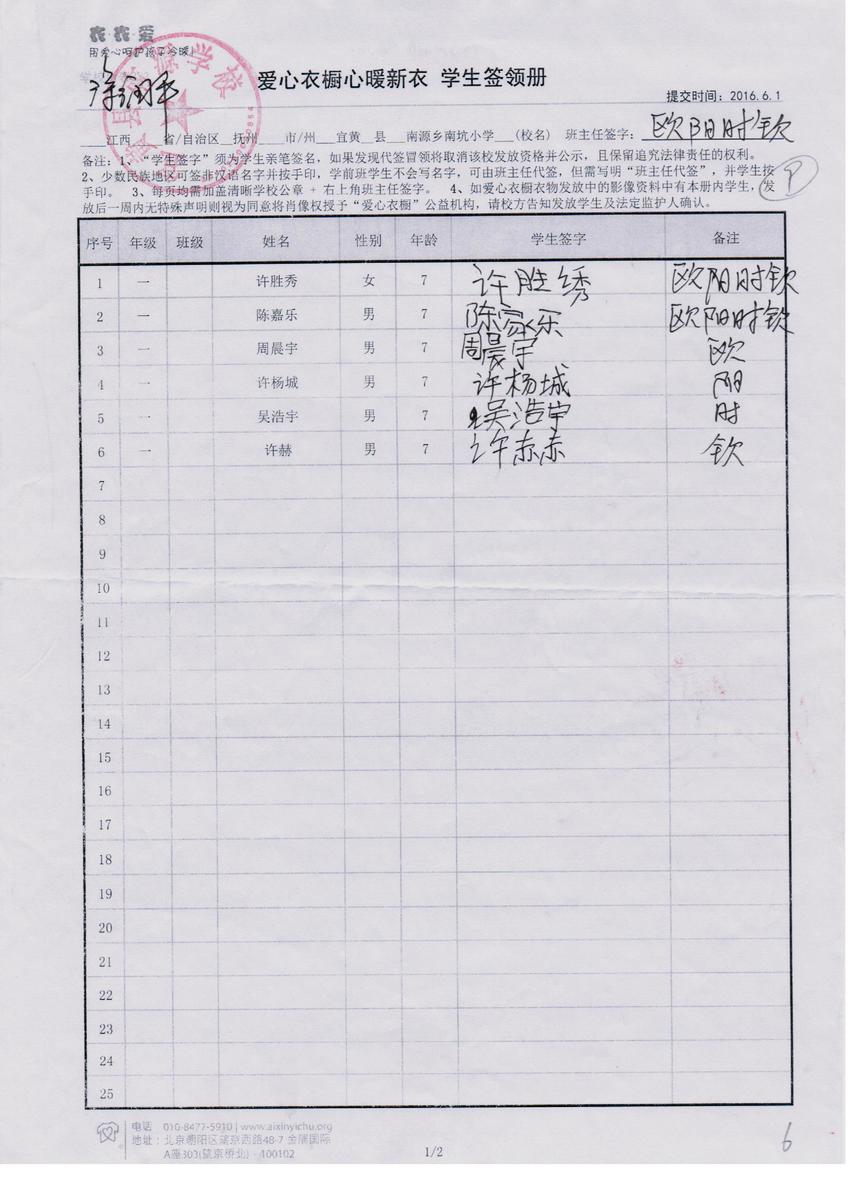 衣·衣·爱
用爱心呵护孩子冷暖!
学校
爱心衣橱心暖新衣 学生签领册
提交时间：2016.6.1
江西 省/自治区 抚州 市/州 宜黄 县 南源乡南坑小学 (校名) 班主任签字：欧阳时钦
备注：1、“学生签字”须为学生亲笔签名，如果发现代签冒领将取消该校发放资格并公示，且保留追究法律责任的权利。
2、少数民族地区可签非汉语名字并按手印，学前班学生不会写名字，可由班主任代签，但需写明“班主任代签”，并学生按
手印。 3、每页均需加盖清晰学校公章 + 右上角班主任签字。 4、如爱心衣橱衣物发放中的影像资料中有本册内学生，发
放后一周内无特殊声明则视为同意将肖像权授予“爱心衣橱”公益机构，请校方告知发放学生及法定监护人确认。
序号 年级 班级 姓名 性别 年龄 学生签字 备注
1 一 许胜秀 女 7 许胜绣 欧阳时钦
2 一 陈嘉乐 男 7 陈家乐 欧阳时钦
3 一 周晨宇 男 7 周晨宇 欧
4 一 许杨城 男 7 许杨城 阳
5 一 吴浩宇 男 7 吴浩宇 时
6 一 许赫 男 7 许赤赤 钦
7
8
9
10
11
12
13
14
15
16
17
18
19
20
21
22
23
24
25
电话 010-8477-5910 | www.aixinyichu.org
地址：北京朝阳区望京西路48-7 金隅国际
A座303(望京桥北) · 100102
1/2
6